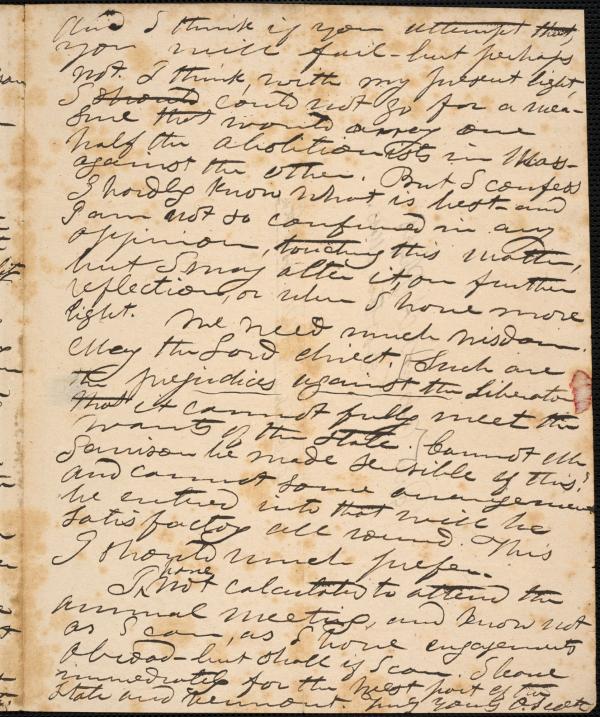 and I think if you attempt that,
you will fail - but perhaps
not. I think, with my present light,
I should could not go for a mea-
sure that would array one
half the abolitionists in Mass-
against the other. But I confess
I hardly know what is best - and
I am not so confirmed in any
oppinion, touching this matter,
but I may alter it, on further
reflection, or when I have more
light. We need much wisdom.
May the Lord direct. Such are
the prejudices against the Liberator
that it cannot fully meet the
wants of the State. Cannot Mr
Garrison be made sensible of this?
and cannot some arrangement
be entired into that will be
satisfactory all round. This
I should much prefer.
I have not calculated to attend the
annual meeting, and know not
as I can, as I have engagements
abroad - but shall if I can. I leave
immediately for the West part of the
State and Vermont. yours O. Scott